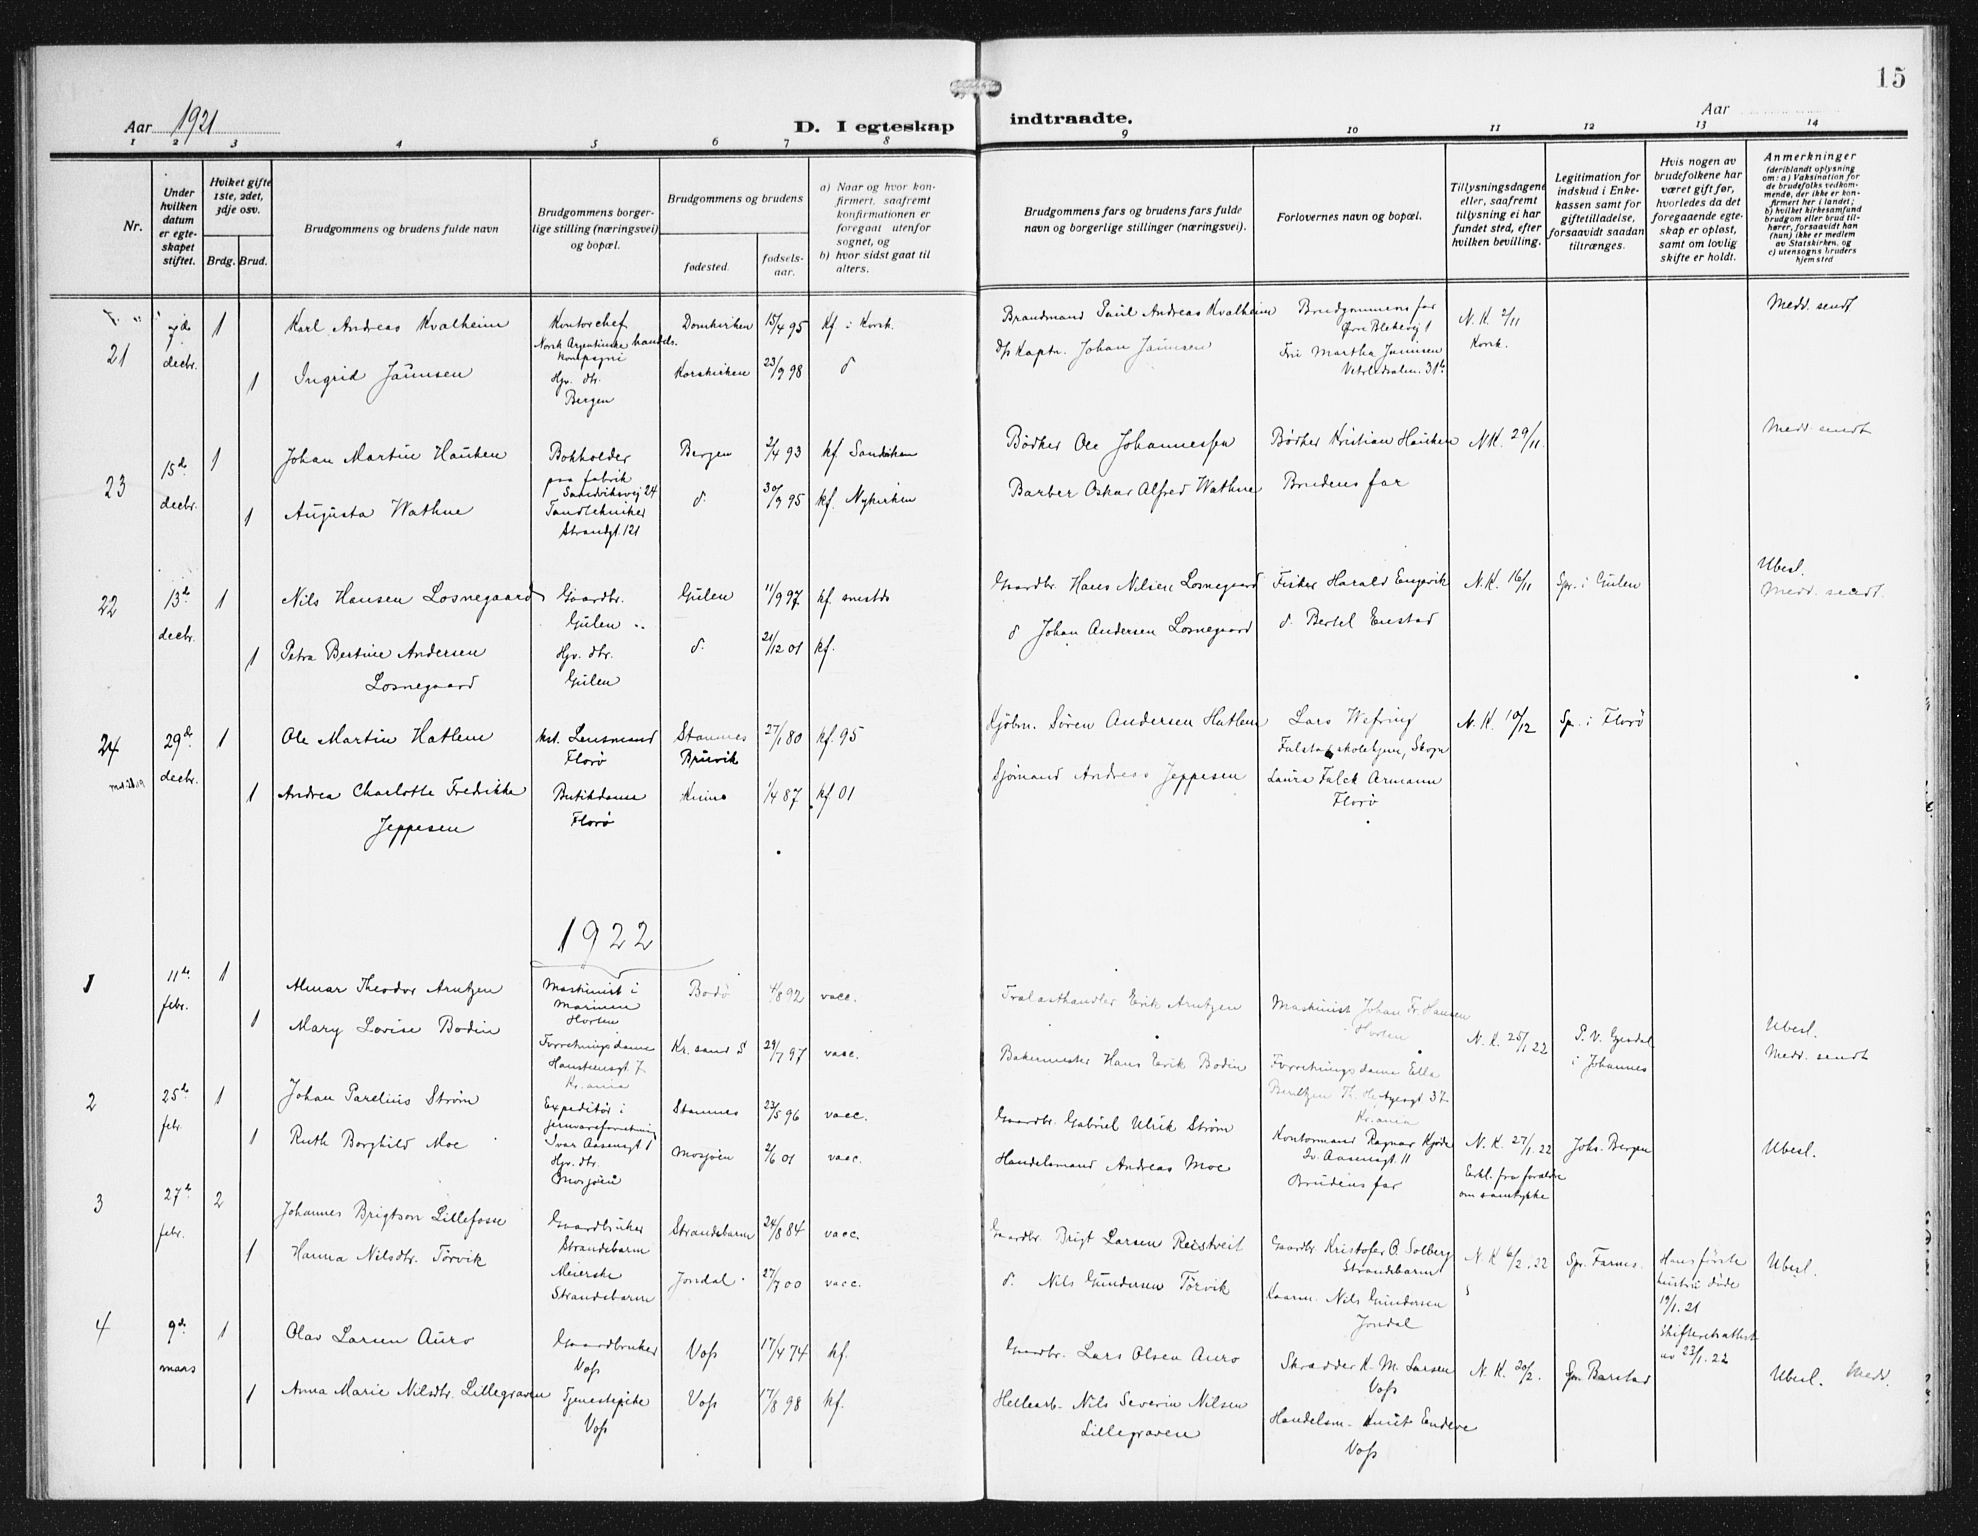 15
Aar 1921
D. I egteskap indtraadte.
Aar
1 2 3 4 5 6 7 8 9 10 11 12 13 14
Nr.
Under hvilken datum er egteskapet stiftet.
Hviket gifte 1ste, 2det, 3dje osv.
Brdg. Brud.
Brudgommens og brudens fulde navn
Brudgommens borgerlige stilling (næringsvei) og bopæl.
Brudgommens og brudens
fødested.
fødselsaar.
a) Naar og hvor konfirmert, saafremt konfirmationen er foregaat utenfor sognet, og
b) hvor sidst gaat til alters.
Brudgommens fars og brudens fars fulde navn og borgerlige stillinger (næringsvei).
Forlovernes navn og bopæl.
Tillysningsdagene eller, saafremt tillysning ei har fundet sted, efter hvilken bevilling.
Legitimation for indskud i Enkekassen samt for giftetilladelse, forsaavidt saadan tiltrænges.
Hvis nogen av brudefolkene har været gift før, hvorledes da det foregaaende egteskap er opløst, samt om lovlig skifte er holdt.
Anmerkninger
(deriblandt oplysning om: a) Vaksination for de brudefolks vedkommende, der ikke er konfirmert her i landet;
b) hvilket kirkesamfund brudgom eller brud tilhører, forsaavidt han (hun) ikke er medlem av Statskirken, og
c) utensogns bruders hjemsted
21 7de decbr. 1 Karl Andreas Kvalheim Kontorchef Domkirken 15/4 95 Kf. i Korsk. Brandmand Paul Andreas Kvalheim Brudgommens far N.K. 2/11 Medd. sendt
Norsk Argentinske handels. Øvre Blekevei 1 Korsk.
kompagni
1 Ingrid Jaunsen Hjv. dtr. Korskirken 23/9 98 d Johan Jaunsen Fru Martha Jaunsen
Bergen
23 15de decbr. 1 Johan Martin Hauken Bokholder Bergen 2/4 93 kf Sandviken Bødker Ole Johannessen Bødker Kristian Hauken N.K. 29/11. Medd. sendt
paa fabrik
Sandviksvej 24
1 Augusta Wathne Tandtekniker d. 30/9 95 kf. Nykirken Barber Oskar Alfred Wathne Brudens far
Strandgt. 121
22 13de decbr. 1 Nils Hansen Losnegaard Gaardbr. Gulen 11/9 97 kf. smstds Gaardbr. Hans Nilsen Losnegaard Fisker Harald Engevik N.K. 16/11 Spr. i Gulen Ubesl.
Gulen Medd. sendt.
1 Petra Bertine Andersen Hjv. dtr. d. 21/12 01 kf. d Johan Andersen Losnegaard d. Bertel Enestad
Losnegaard Gulen
24 29de decbr. 1 Ole Martin Hatlem kst. Lensmand Stamnes 27/1 80 kf. 95 Kjøbm. Søren Andersen Hatlem Lars Wefring N.K. 10/12 Sp. i Florø
Florø Bruvik
1 Andrea Charlotte Fredikke Butikdame 1/4 87 kf 01 Sjømand Andreas Jeppesen Laura Falck Ormann
Jeppesen Florø Florø
1922
1 11de febr. 1 Almar Theodor Arntzen Maskinist i Bodø 4/8 92 vacc. Trælasthandler Erik Arntzen Maskinist Johan Fr. Hansen
Marinen Horten
Horten
1 Mary Lovise Bodin Forretningsdame Kr. sand S 29/7 97 vacc. Bakermester Hans Erik Bodin Forretningsdame Ella N.K. 25/1 22 P.V. Gjesdal Ubesl.
Hansteensgt 7 Berntzen Th. Heftyesgt 37 i Johannes Medd. sendt
Kr.ania Kr.ania
2 25de febr. 1 Johan Parelius Strøm Expeditør i Stamnes 23/5 96 vacc. Gaardbr. Gabriel Ulrik Strøm Kontormand Ragnar Kjøde N.K. 27/1 22 Johs. Bergen Ubesl.
jernvareforretning Iv. Aasensgt 11
Ivar Aasensgt 1
1 Ruth Borghild Moe Hjv. dtr. Mosjøen 2/6 01 vacc. Handelsmand Andreas Moe Brudens far Erkl. fra foraldre
Mosjøen om samtykke
3 27de febr. 2 Johannes Brigtson Lillefosse Gaardbruker Strandebarm 24/8 84 vacc. Gaardbr. Brigt Larsen Reistveit Gaardbr Kristofer O. Solberg N.K 6/2. 22 Spr. Farnes. Hans første Ubesl.
Strandebarm Strandebarm hustru døde
1 Hanna Nilsdtr. Tørvik Meierske Jondal 27/7 00 vacc. d. Nils Gundersen Tørvik Kaarm. Nils Gundersen 19/1. 21
Strandebarm Jondal Skifteretsattest
av 23/1. 22
4 9de mars 1 Olav Larsen Auro Gaardbruker Voss 17/4 74 kf. Gaardbr. Lars Olsen Auro Skrædder K. M. Larsen N.K. 20/2. Spr. Barstad Ubesl. Medd.
Voss Voss
1 Anna Marie Nilsdtr. Lillegraven Tjenestepike Voss 17/8 98 kf. Hellearb. Nils Severin Nilsen Handelsm. Knut Endeve
Voss Lillegraven Voss